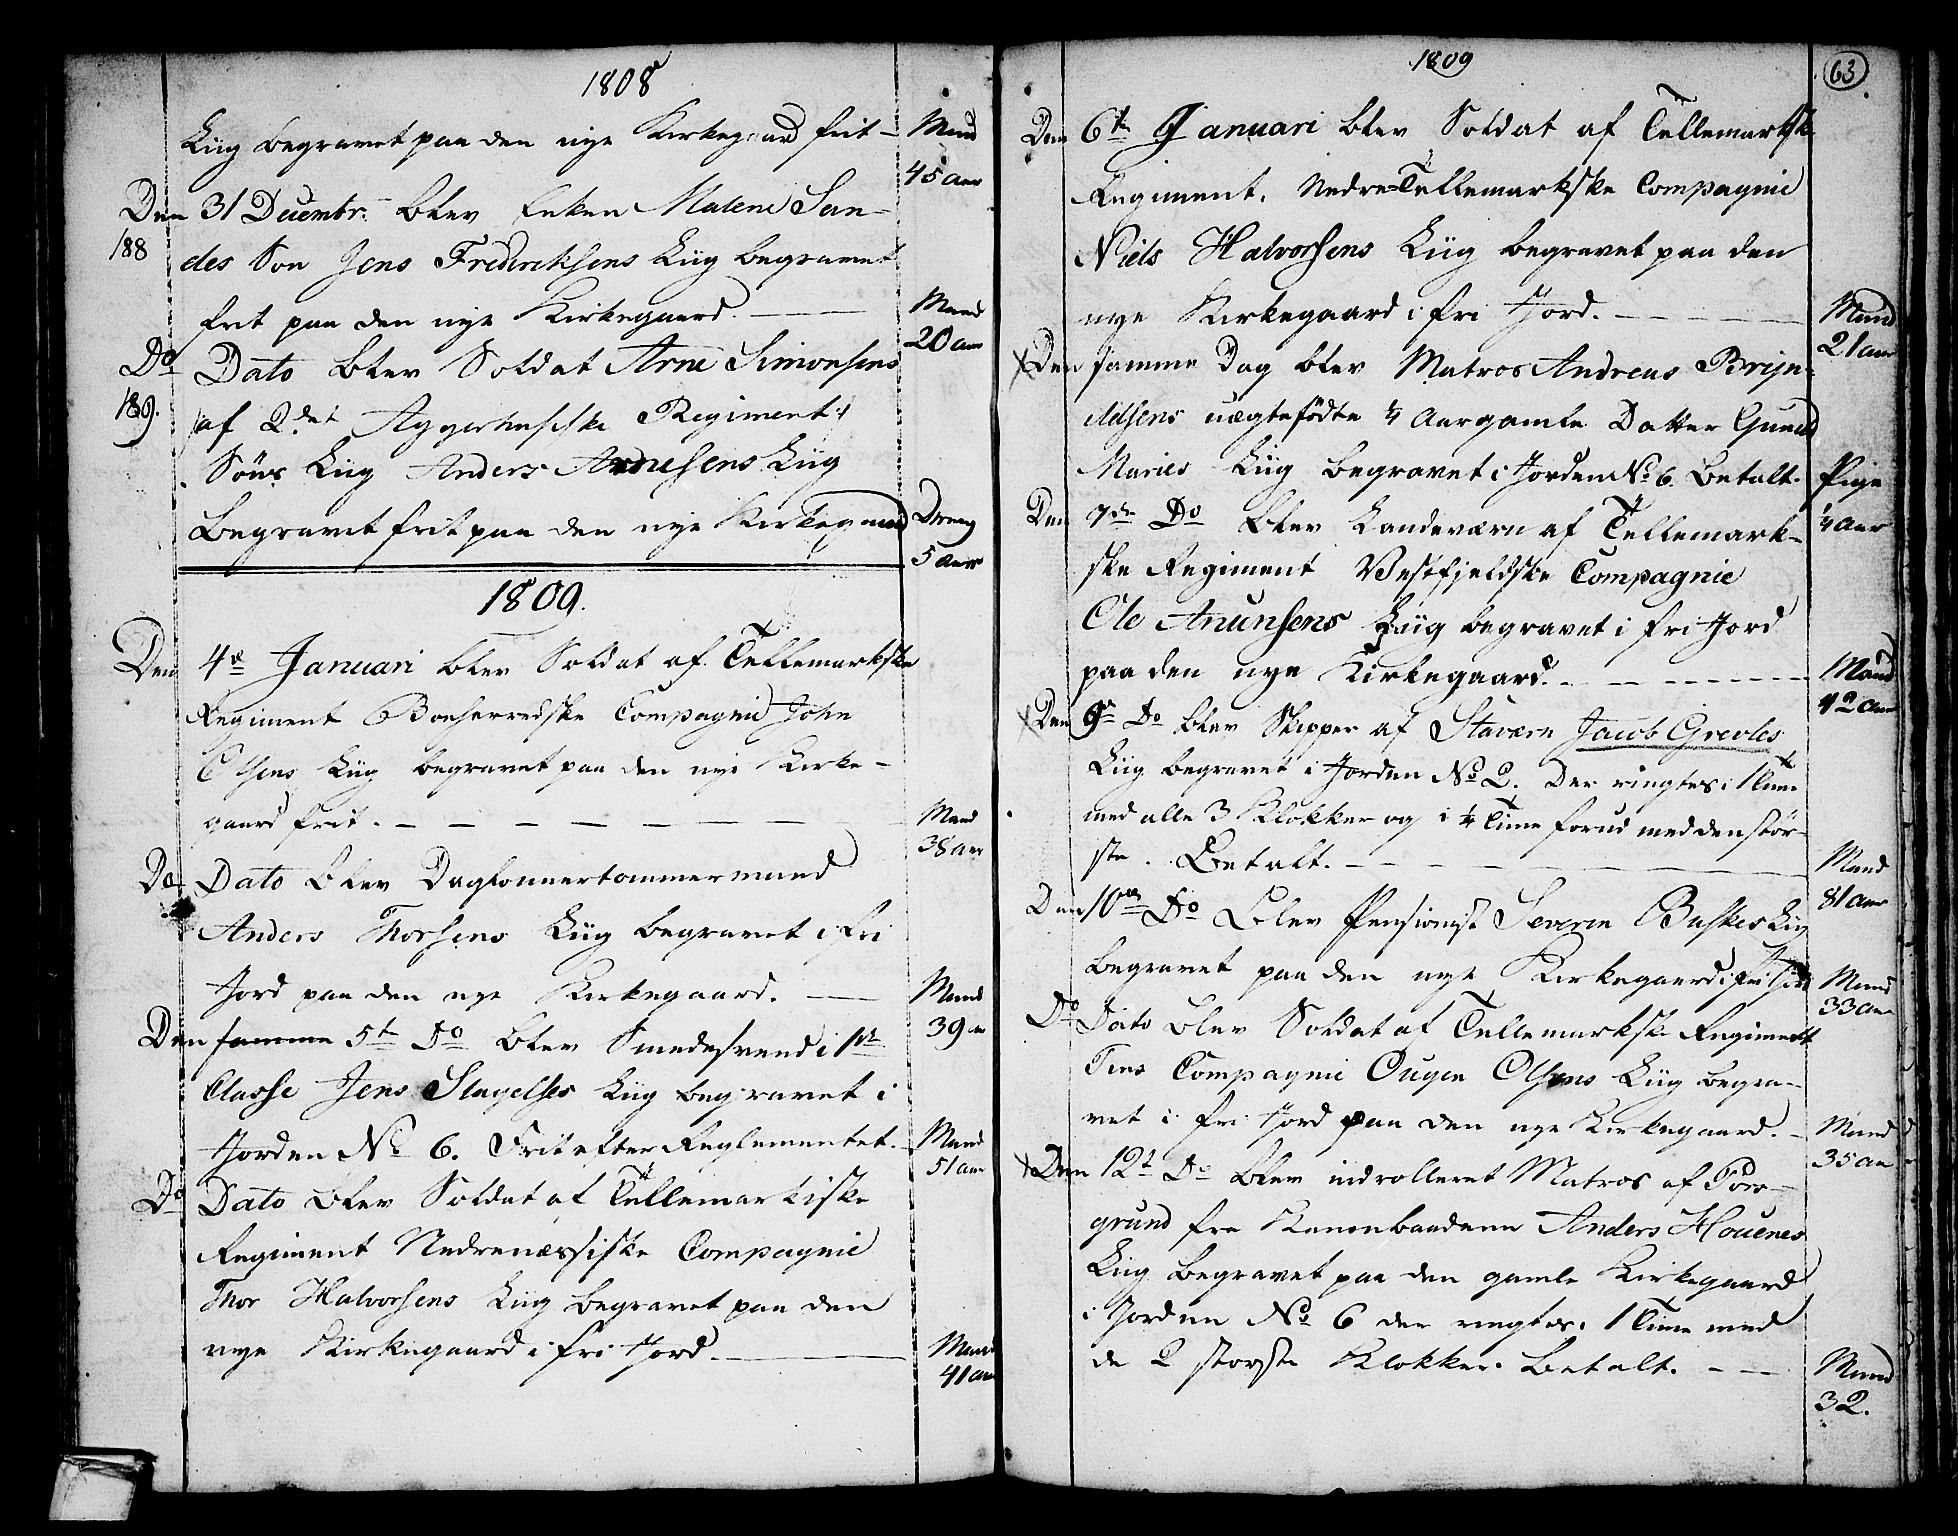 1808
Liig begravet paa den nye Kirkegaard frit – Mand
45 Aar
Den 31 Decembr: blev Enken Malene San-
188 des Søn Jens Frideriksens Liig begravet
frit paa den nye Kirkegaard. Mand
20 aar
Do Dato blev Soldat Arne Simonsens
189. af 2det Aggerhusiske Regiment:s
Søns Liig Anders Arnesens Liig
begravet frit paa den nye Kirkegaard Dreng
5 Aar
1809.
Den 4de Januari blev Soldat af Tellemarkske
Regiment Boeherredske Compagnie John
Olsens Liig begravet paa den nye Kirke-
gaard frit. Mand
38 aar
Do Dato blev Daglønnertømmermand
Anders Thorsens Liig begravet i fri
Jord paa den nye Kirkegaard. Mand
39 aar
Den samme 5te Do blev Smedesvend i 1ste
Classe Jens Slagelses Liig begravet i
Jorden No 6. Frit efter Reglementet. Mand
51 aar
Do Dato blev Soldat af Tellemarkiske
Regiment Nedrenæssiske Compagnie
Thor Halvorsens Liig begravet paa den
nye Kirkegaard i fri Jord Mand
41 aar
1809 63
Den 6te Januari blev Soldat af Tellemarkske
Regiment, Nedre=Tellemarkske Compagnie
Niels Halvorsens Liig begravet paa den
nye Kirkegaard i fri Jord. Mand
21 aar
x Den samme Dag blev Matros Andreas Brijn-
ildsens uægtefødte 1/4 Aar gamle Datter Guneld
Maries Liig begravet i Jorden No 6. Betalt. Pige
1/4 Aar
Den 7de Do blev Landeværn af Tellemark-
ske Regiment Vestfjeldske Compagnie
Ole Anunsens Liig begravet i fri Jord
paa den nye Kirkegaard. Mand
42 aar
x Den 9de Do blev Skipper af Staværn Jacob Grevles
Liig begravet i Jorden No 2. Der ringtes i 1 Time
med alle 3 Klokker og i 1/4 Time forud med den stør-
ste. Betalt. Mand
81 aar
Den 10de Do blev Pensionist Severin Buskes Liig
begravet paa den nye Kirkegaard i fri Jord Mand
33 aar
Do Dato blev Soldat af Tellemarkske Regiment
Tins Compagnie Ougen Olsens Liig begra-
vet i fri Jord paa den nye Kirkegaard. Mand
35 aar
x Den 12te Do blev indrolleret Matros af Pors-
grund fra Kanonbaadene Anders Houenes
Liig begravet paa den gamle Kirkegaard
i Jorden No 6 der ringtes i 1 Time med
de 2 største Klokker. Betalt. Mand
32.